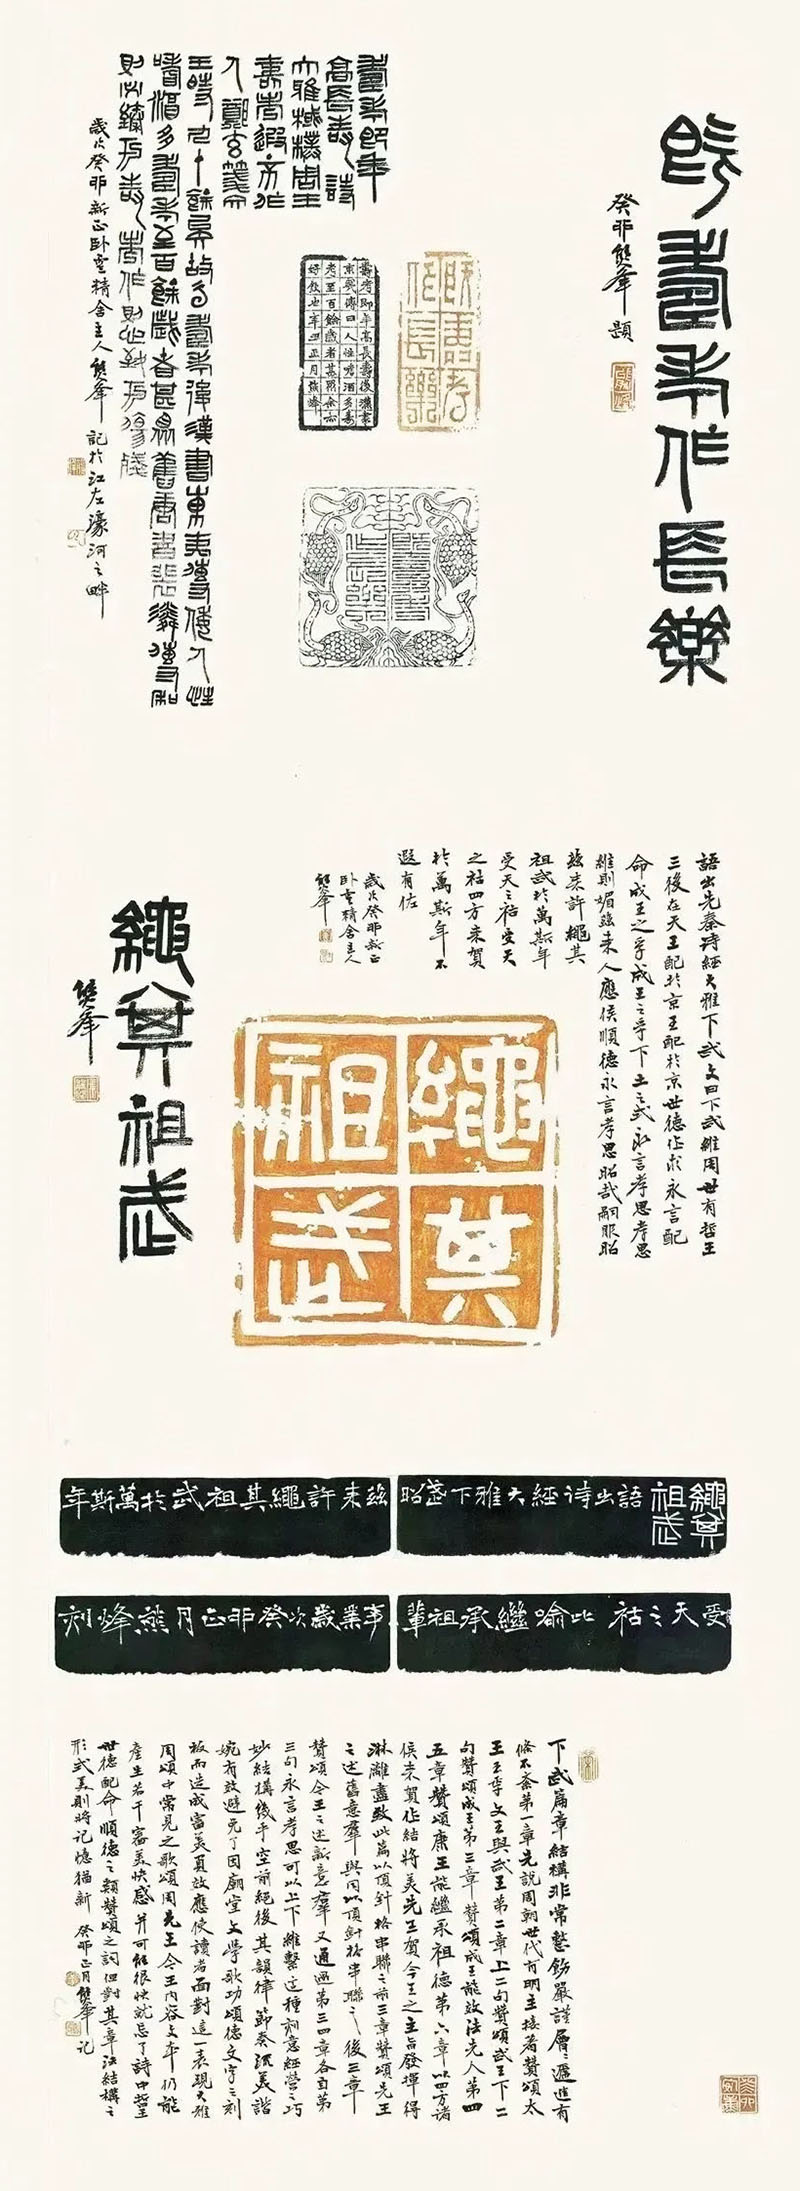 既壽考作長樂
癸卯熊峯題
壽考即年
高長壽詩
大雅棫樸周王
壽考遐不作
人鄭玄箋文
王時九十餘矣故云壽考後漢書東夷傳倭人性
嗜酒多壽考至百餘歲者甚眾舊唐書裴潾傳和
則必臻於壽考作則必致於傷殘
歲次癸卯新正卧雲精舍主人熊峯記於江左濠河之畔
既壽考作長樂
壽考即年高長壽後漢書
東夷傳曰人性嗜酒多壽
考至百餘歲者甚眾余亦
正月熊烽
語出先秦詩經大雅下武文曰下武維周世有哲王
三後在天王配於京王配於京世德作求永言配
命成王之孚成王之孚下土之式永言孝思孝思
維則媚茲來人應侯順德永言孝思昭哉嗣服昭
茲來許繩其
祖武於萬斯年
受天之祜受天
之祜四方來賀
於萬斯年不
遐有佐
歲次癸卯新正
卧雲精舍主人
熊峯
繩其祖武
熊峯
繩其祖武
繩其祖武
語出詩經大雅下武昭茲來許繩其祖武於萬斯年
受天之祜比喻繼承祖輩事業歲次癸卯正月熊烽刻
下武篇章結構非常整飭嚴謹層層遞進有
條不紊第一章先說周朝世代有明主接著贊頌太
王王季文王與武王第二章上二句贊頌武王下二
句贊頌成王第三章贊頌成王能效法先人第四
五章贊頌康王能繼承祖德第六章以四方諸
侯來賀作結將美先王賀今王之主旨發揮得
淋灕盡致此篇以頂針格串聯之前三章贊頌先王
之述舊意群與同以頂針格串聯之後三章
贊頌今王之述新意群又通過第三四章各自第
三句永言孝思可以上下維繫這種刻意經營之巧
妙結構幾乎空前絕後其韻律節奏流美諧
婉有效避免了因廟堂文學歌功頌德文字之刻
板而造成審美負效應使讀者面對這一表現大雅
周頌中常見之歌頌周先王今王內容文本仍能
產生若干審美快感并可能很快就忘了詩中哲王
世德配命順德之類贊頌之詞但對其章法結構之
形式美則將記憶猶新 癸卯正月熊峯記